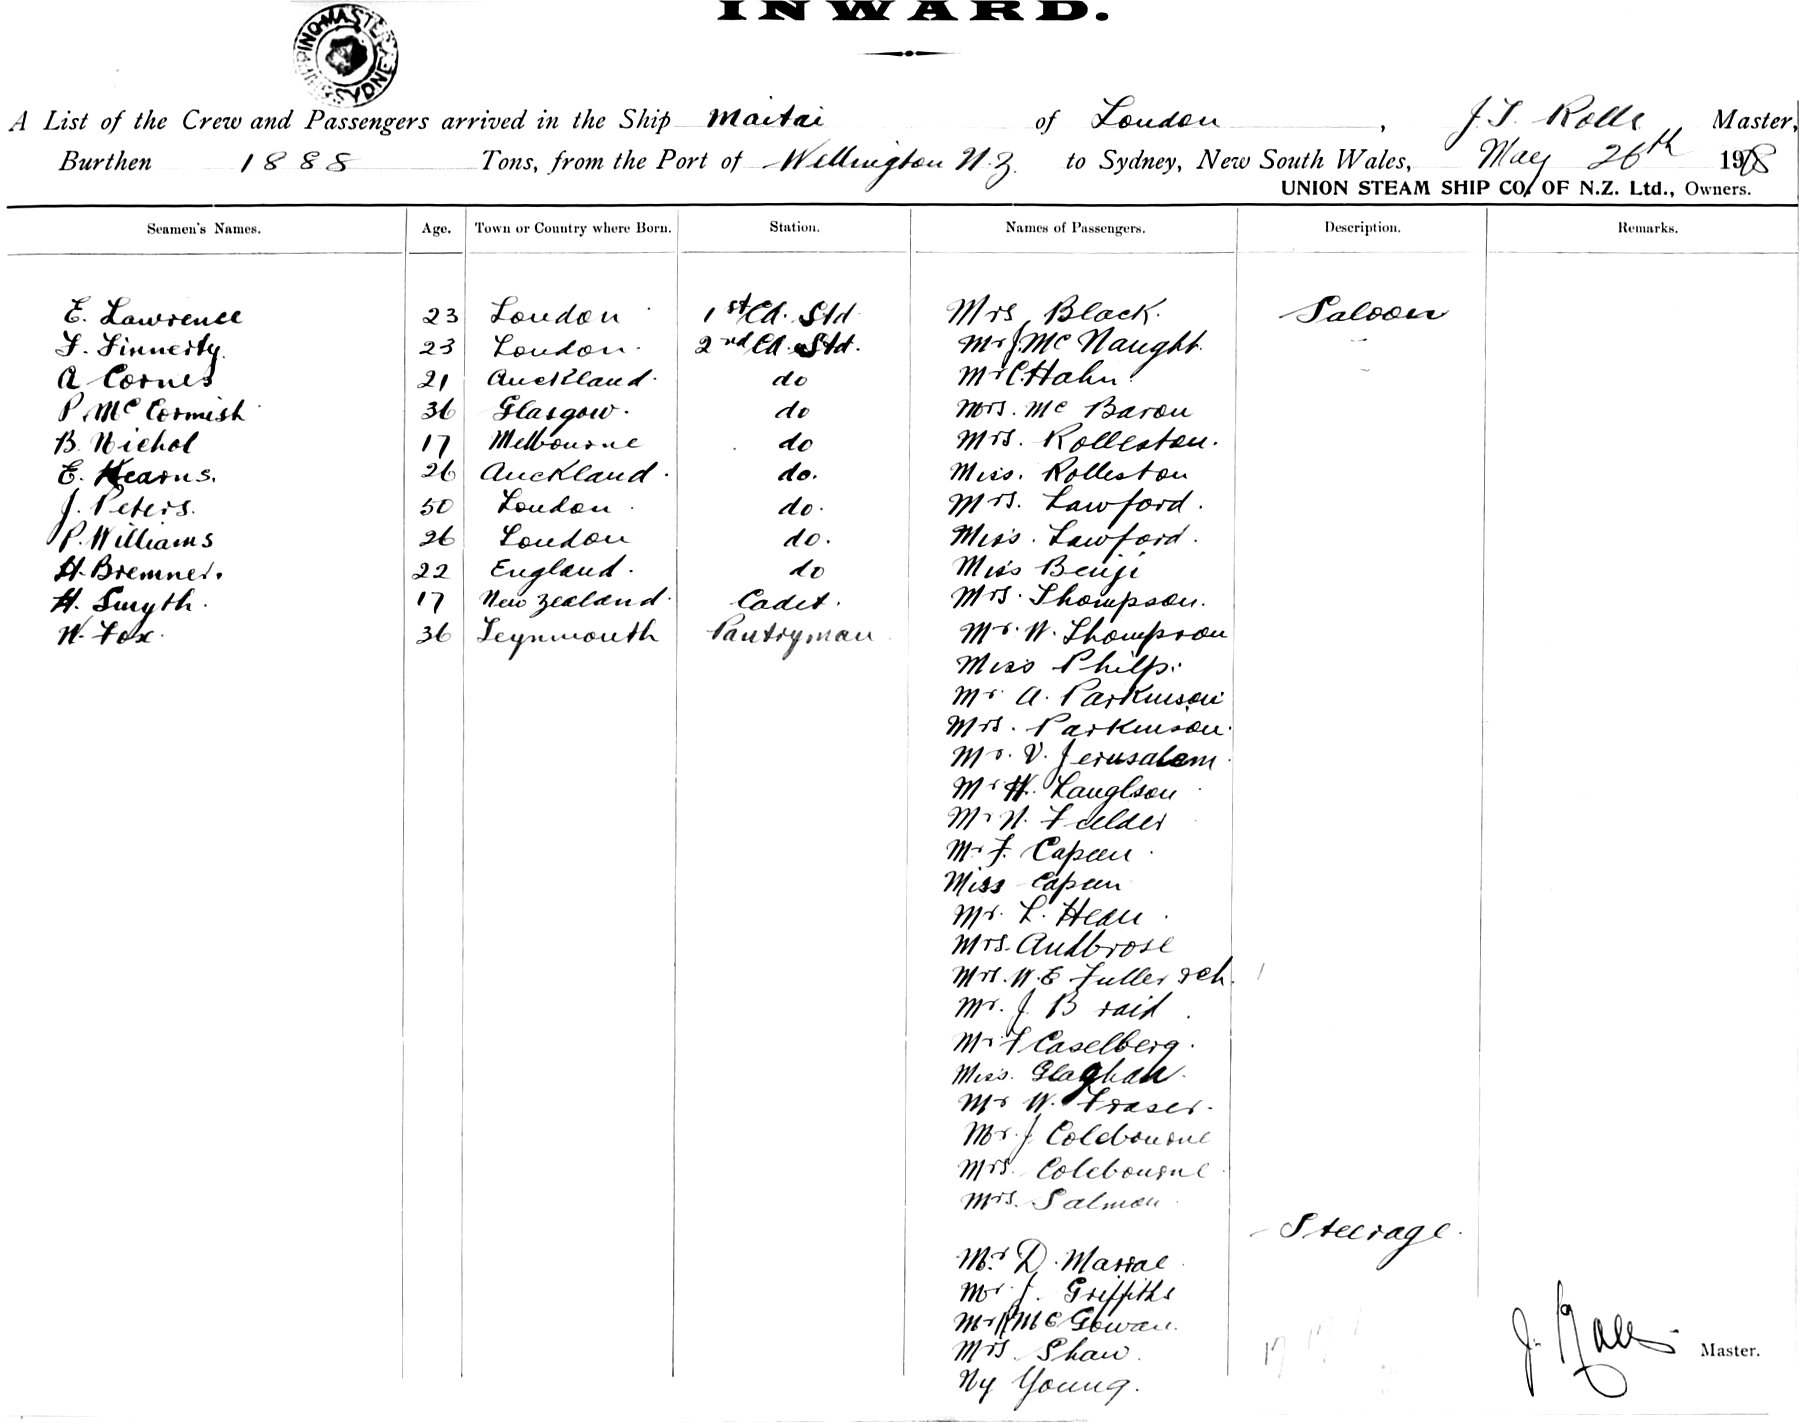 INWARD.
SHIPPING MASTER SYDNEY
A List of the Crew and Passengers arrived in the Ship Maitai of London, J. T. Rolls Master,
Burthen 1888 Tons, from the Port of Wellington N.Z. to Sydney, New South Wales, May 26th 1908
UNION STEAM SHIP CO. OF N.Z. Ltd., Owners.
Seamen's Names. Age. Town or Country where Born. Station. Names of Passengers. Description. Remarks.
E. Lawrence 23 London 1st Cl. Std Mrs Black. Saloon
F. Finnerty. 23 London. 2nd Cl. Std. Mr J. McNaught.
A Cornes 21 Auckland. do Mr C. Hahn.
P. McCormish 36 Glasgow. do Mrs. Mc Baron
B. Nichol 17 Melbourne do Mrs. Rolleston.
E. Kearns. 26 Auckland. do. Miss. Rolleston
J. Peters. 50 London. do. Mrs. Lawford.
P. Williams 26 London do. Miss. Lawford.
H. Bremner. 22 England. do Miss Benji
H. Smyth. 17 New Zealand. Cadet. Mrs. Thompson.
W. Fox. 36 Teynmouth Pantryman Mr. W. Thompson
Miss Philp.
Mr A. Parkinson
Mrs. Parkinson.
Mr. V. Jerusalem
Mr H. Langlson
Mr N. Fielder
Mr F. Capeen.
Miss Capeen
Mr. L. Hean.
Mrs. Audbrose
Mrs. W. E Fuller & ch.
Mr. J. Braid.
Mr F Caselberg.
Miss. Glaghan.
Mr W. Fraser.
Mr. J Colebourne
Mrs. Colebourne.
Mrs. Salmon
Steerage.
Mr. D. Marrae
Mr. J. Griffiths
Mr McGowan.
Mrs Shaw.
Ny Young.
J. Rolls Master.